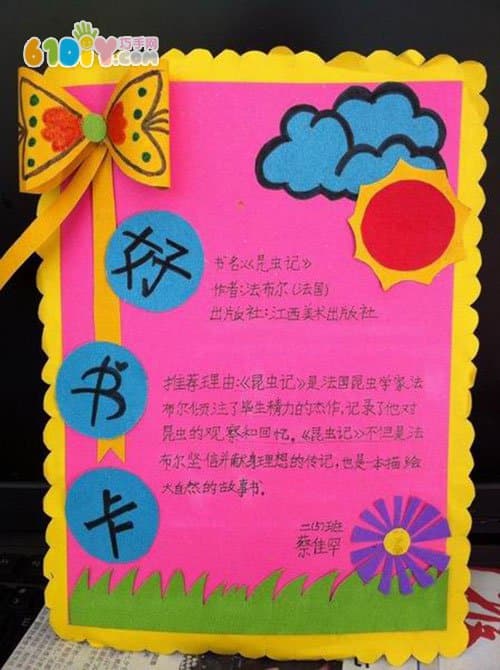 61DIY巧手网
.com
好
书
卡
书名:《昆虫记》
作者:法布尔(法国)
出版社:江西美术出版社
推荐理由:《昆虫记》是法国昆虫学家法
布尔倾注了毕生精力的杰作,记录了他对
昆虫的观察和回忆。《昆虫记》不但是法
布尔坚信并献身理想的传记,也是一本描绘
大自然的故事书。
二(5)班
蔡佳罕